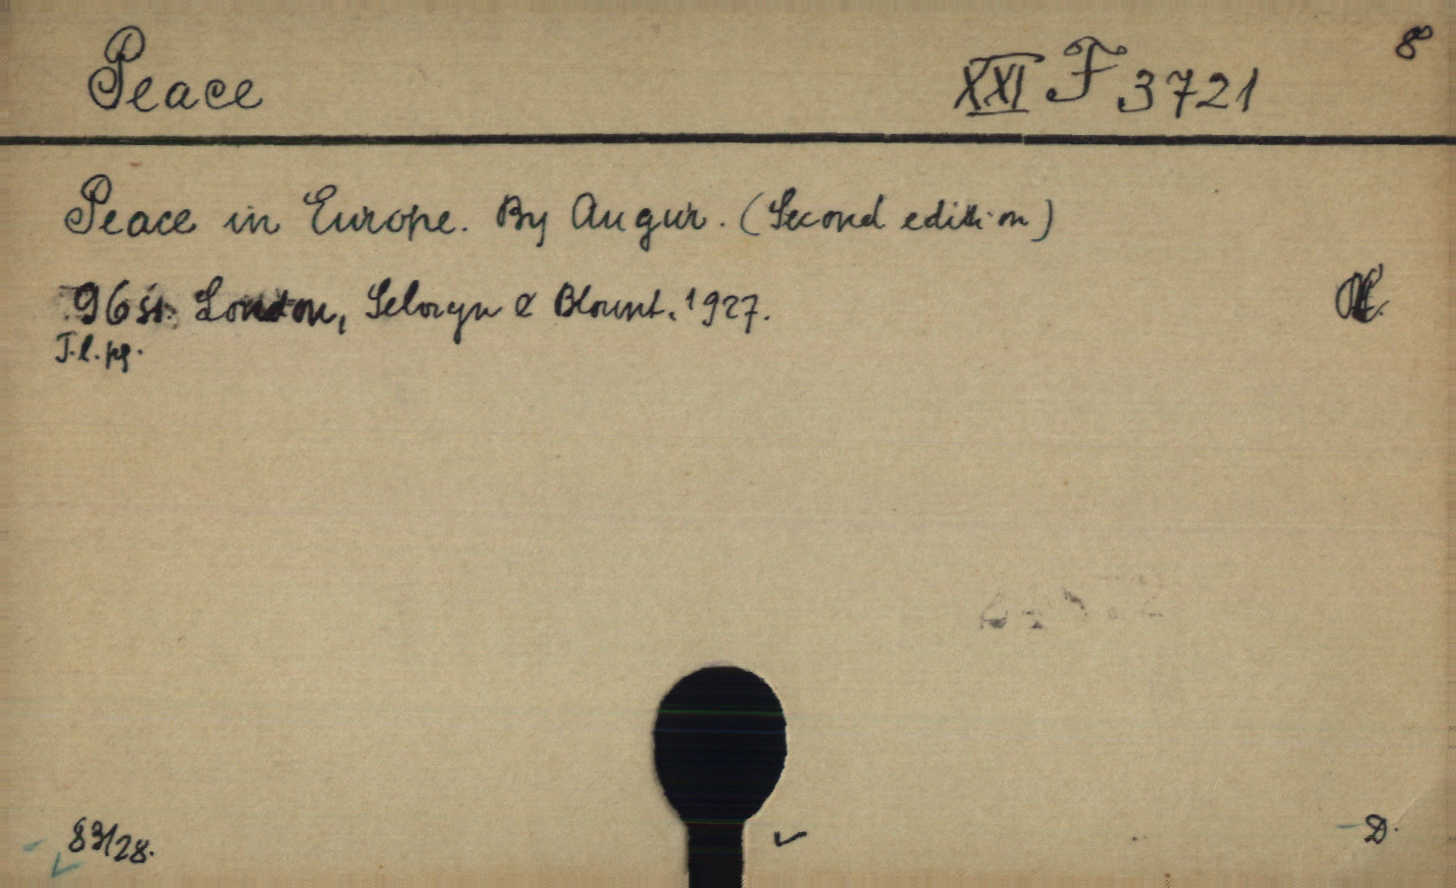 Peace XXI F 3721 8
Peace in Europe. By Augur. (Second edition)
96 st. London, Selwyn & Blount. 1927.
T.l.pg.
83/28. D.